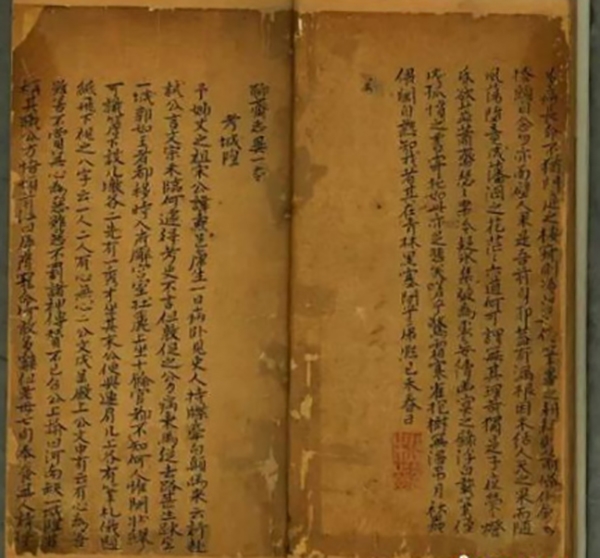 長命不猶門庭之淒寂則冷淡如僧筆墨之耕耘則蕭條似
搔頭自念勿亦面壁人果是吾前身耶蓋有漏根因未結人天之果而隨
風蕩墮竟成藩溷之花茫茫六道何可謂無其理哉獨是子夜熒熒燈
昏欲蕊蕭齋瑟瑟案冷疑冰集腋為裘妄續幽冥之錄浮白載筆僅
成孤憤之書寄托如此亦足悲矣嗟乎驚霜寒雀抱樹無溫吊月秋蟲
偎闌自熱知我者其在青林黑塞間乎康熙己未春日
聊齋志異一卷
考城隍
予姊丈之祖宋公諱燾邑廩生一日病卧見吏人持牒牽白顛馬來云請赴
試公言文宗未臨何遽得考吏不言但敦促之公力疾乘馬從去路甚生疎至
一城郭如王者都移時入府廨宮室壯麗上坐十餘官都不知何人惟關壯繆
可識簷下設几墩各二先有一秀才坐其末公便與連肩几上各有筆札俄題
紙飛下視之八字云一人二人有心無心二公文成呈殿上公文中有云有心為善
雖善不賞無心為惡雖惡不罰諸神傳贊不已召公上諭曰河南缺一城隍君
稱其職公方悟頓首泣曰辱膺寵命何敢多辭但老母七旬奉養無人請得